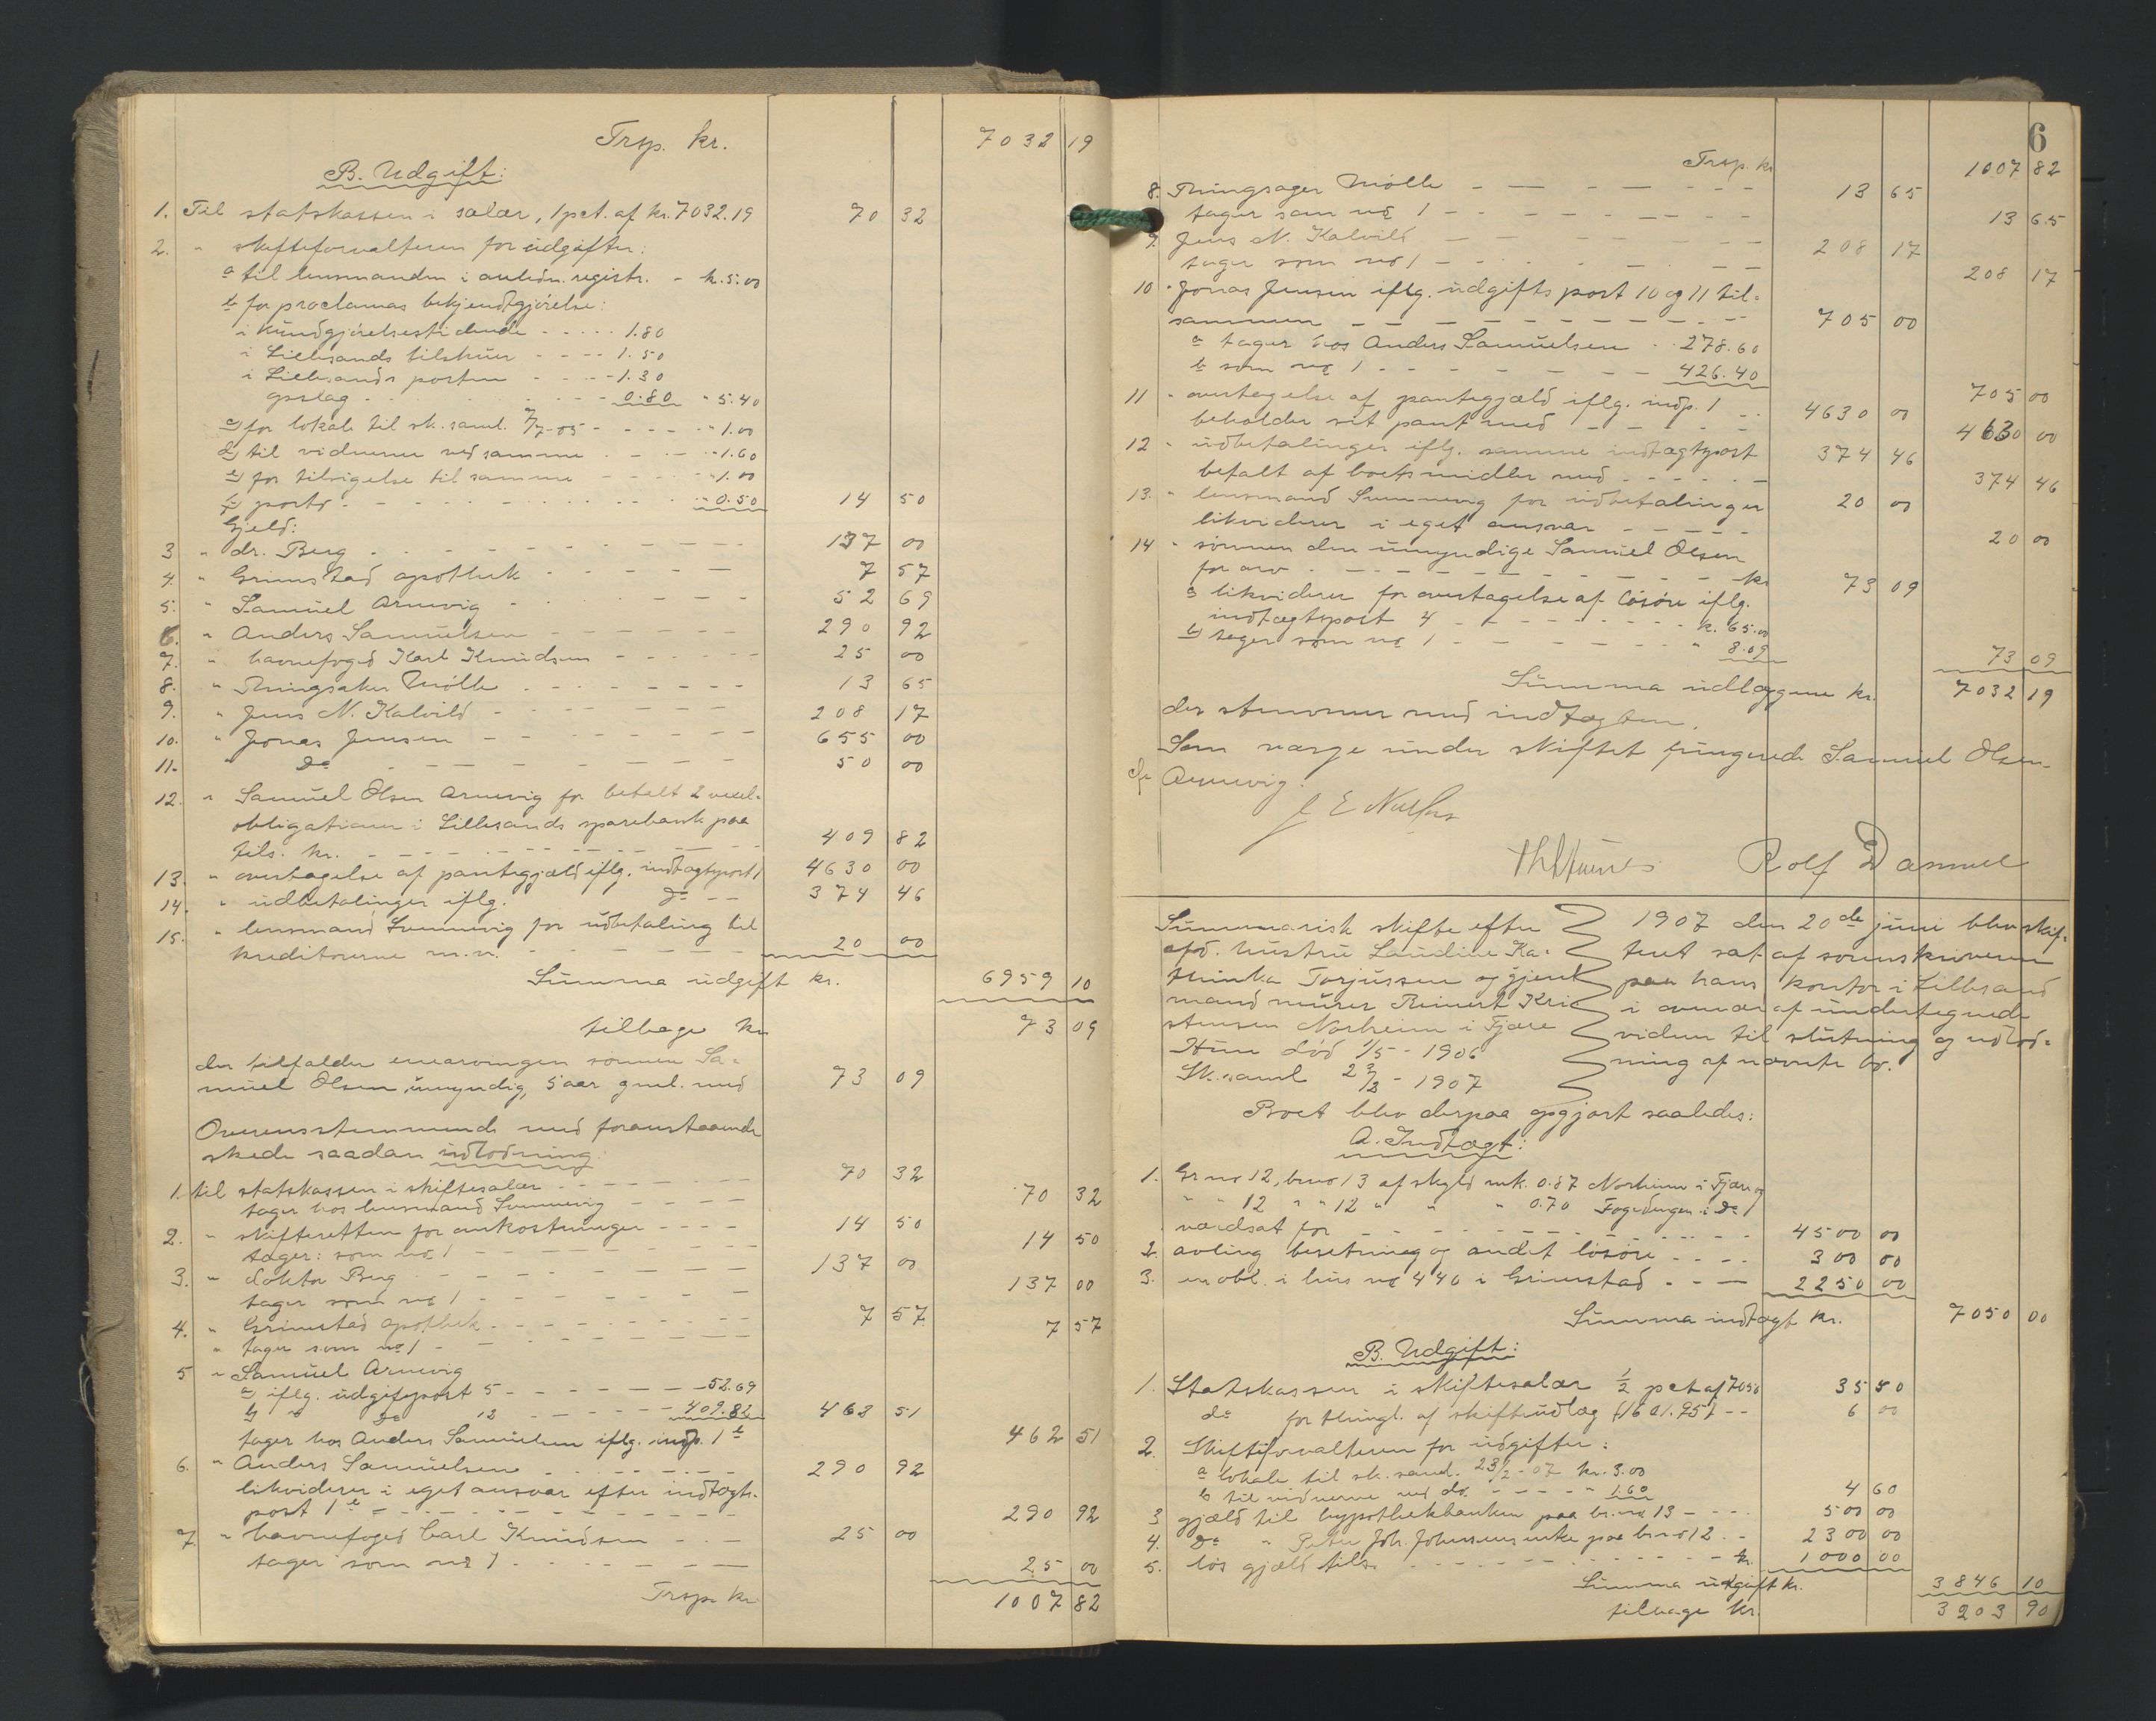 Trsp. kr. 7032 19
B. Udgift:
1. Til statskassen i salær, 1 pct. af kr. 7032.19 70 32
2. " skifteforvalteren for udgifter:
a til lensmanden i anledn. registr. - k. 5.00
b for proclamas bekjendtgjörelse:
i Kundgjörelsestidende - - - 1.80
i Lillesands tilskuer - - - 1.50
i Lillesands posten - - - 1.30
opslag - - - 0.80 " 5.40
c) for lokale til sk. saml. 7/7-05 - - - " 1.00
d) til vidnerne ved samme - - - 1.60
e) for tilsigelse til samme - - - 1.00
f) porto - - - " 0.50 14 50
Gjeld:
3 " dr. Berg - - - 137 00
4. " Grimstad apothek - - - 7 57
5. " Samuel Arnevig - - - 52 69
6. " Anders Samuelsen - - - 290 92
7. " havnefoged Karl Knudsen - - - 25 00
8. " Thingsaker Mölle - - - 13 65
9. " Jens N. Kalvild - - - 208 17
10. " Jonas Jensen - - - 655 00
11. " do - - - 50 00
12. " Samuel Olsen Arnevig for betalt 2 vexel-
obligationer i Lillesands sparebank paa
tils. kr. - - - 409 82
13. " overtagelse af pantegjæld iflg. indtægtspost 1 4630 00
14. " udbetalinger iflg. do - - 374 46
15. " lensmand Svennevig for udbetaling til
kreditorerne m.v. - - - 20 00
Summa udgift kr. 6959 10
tilbage kr 73 09
der tilfalder enearvingen sönnen Sa-
muel Olsen, umyndig, 5 aar gml. med 73 09
Overensstemmende med foranstaaende
skede saadan udlodning:
1. til statskassen i skiftesalær - - - 70 32
tager hos lensmand Svennevig - - - 70 32
2. " skifteretten for omkostninger - - - 14 50
tager: som no 1 - - - 14 50
3. " doktor Berg - - - 137 00
tager som no 1 - - - 137 00
4. " Grimstad apothek - - - 7 57
" tager som no 1 - - - 7 57
5 " Samuel Arnevig
a) iflg. udgiftspost 5 - - - 52.69
b) " do 12 - - - 409.82 462 51
tager hos Anders Samuelsen iflg. indp. 1 e 462 51
6. " Anders Samuelsen - - - 290 92
likviderer i eget ansvar efter indtægts-
post 1 e - - - 290 92
7. " havnefoged Carl Knudsen - - - 25 00
tager som no 1 - - - 25 00
Trsp. kr. 1007 82
6
Trsp. kr 1007 82
8. Thingsager Mölle - - - 13 65
tager som no 1 - - - 13 65
9. Jens N. Kalvild - - - 208 17
tager som no 1 - - - 208 17
10 " Jonas Jensen iflg. udgiftspost 10 og 11 til-
sammen - - - 705 00
a tager hos Anders Samuelsen - - 278.60
b som no 1 - - - 426.40
705 00
11 " overtagelse af pantegjæld iflg. indp. 1 - - 4630 00
beholder sit pant med - - - 4630 00
12 " udbetalinger iflg. samme indtægtspost 374 46
betalt af boets midler med - - - 374 46
13. " lensmand Svennevig for udbetalinger 20 00
likviderer i eget ansvar - - - 20 00
14 " sönnen den umyndige Samuel Olsen
for arv - - - kr 73 09
a likviderer for overtagelse af lösöre iflg.
indtægtspost 4 - - - k. 65.00
b) tager som no 1 - - - " 8.09
73 09
Summa udlæggene kr. 7032 19
der stemmer med indtægten.
Som værge under skiftet fungerede Samuel Olsen
Arnevig.
Rolf Dannuel
Summarisk skifte efter
afd. hustru Laudine Ka-
thinka Torjussen og gjenl.
mand murer Reinert Kri-
stensen Norheim i Fjære
Hun död 1/5 - 1906
Sk. saml 23/2 - 1907
1907 den 20de juni blev skif-
teret sat af sorenskriveren
paa hans kontor i Lillesand
i overvær af undertegnede
vidner til slutning og udlod-
ning af nævnte bo.
Boet blev derpaa opgjort saaledes:
A. Indtægt:
1. Gr no 12, br no 13 af skyld mk. 0.87 Norheim i Fjære og
" " 12 " " 12 " " " 0.70 Fogedengen i do
værdsat for - - - 4500 00
2. avling besetning og andet lösöre - - - 300 00
3. en obl. i hus no 440 i Grimstad - - - 2250 00
Summa indtægt kr. 7050 00
B. Udgift:
1. Statskassen i skiftesalær 1/2 pct af 7050 35 50
do for thingl. af skifteudlæg - - 6 00
2. Skifteforvalteren for udgifter:
a lokale til sk. saml. 23/2-07 kr. 3.00
b til vidnerne ved do. - - - " 1.60 4 60
3 gjæld til hypothekbanken paa br. no 13 - - - 500 00
4. do " Peter Joh. Johnsens enke paa br no 12 - - 2300 00
5. lös gjæld tils. - - - kr. 1000 00
Summa udgift kr. 3846 10
tilbage kr. 3203 90